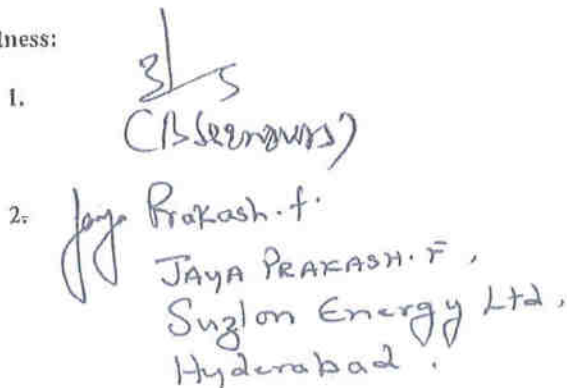 tness:
1.
2. Jaya Prakash.f.
JAYA PRAKASH. F,
Suzlon Energy Ltd,
Hyderabad.